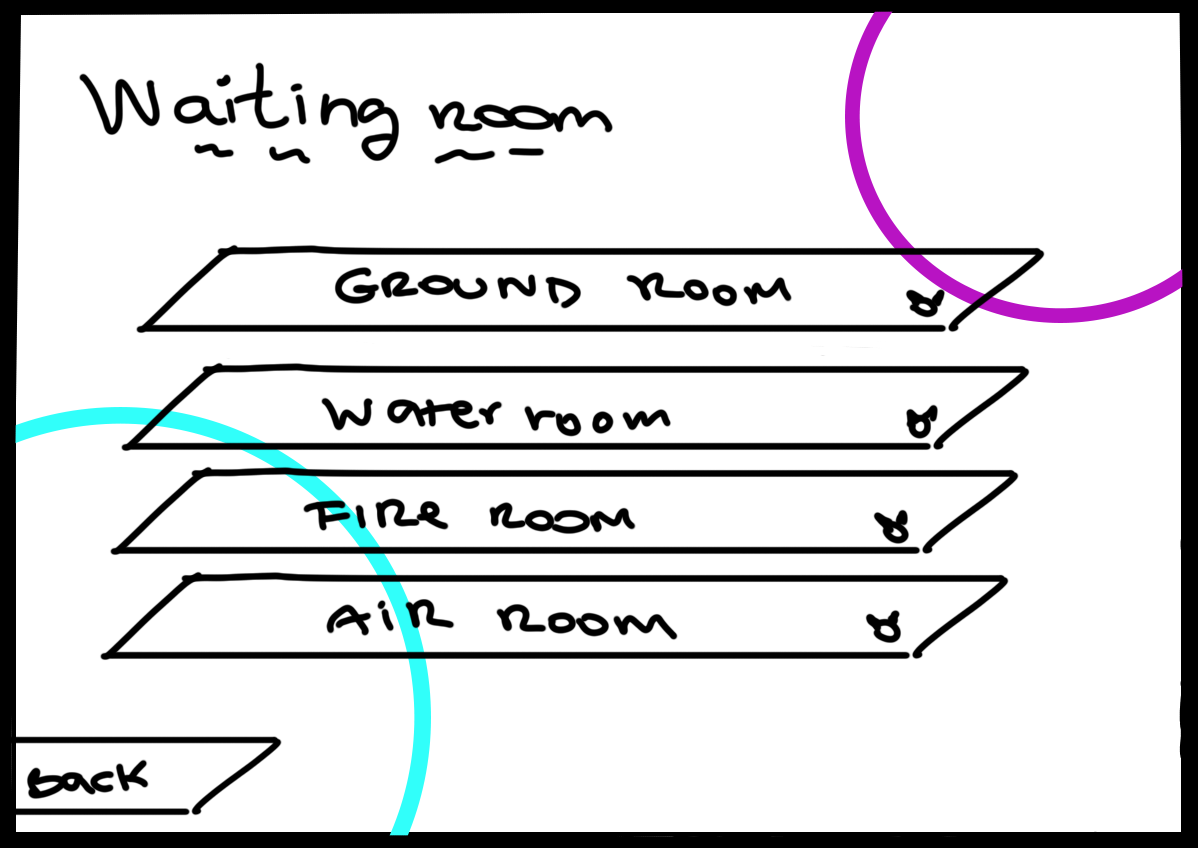 Waiting room
GROUND ROOM
Water room
FIRe ROOM
AiR ROOM
Back